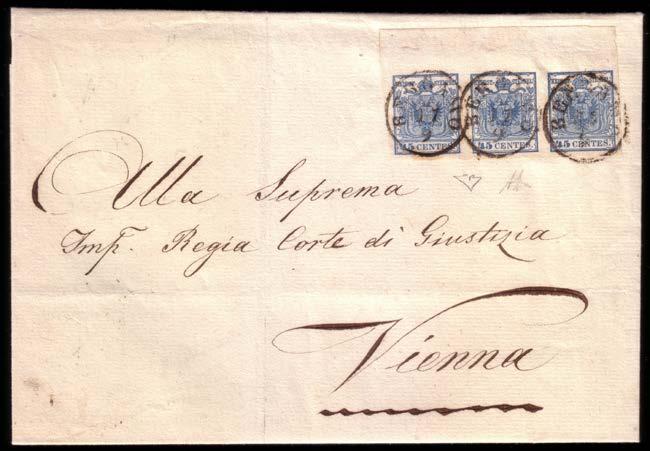 45 CENTES. 45 CENTES. 45 CENTES.
17
9
Alla Suprema
Imp. Regia Corte di Giustizia
Vienna